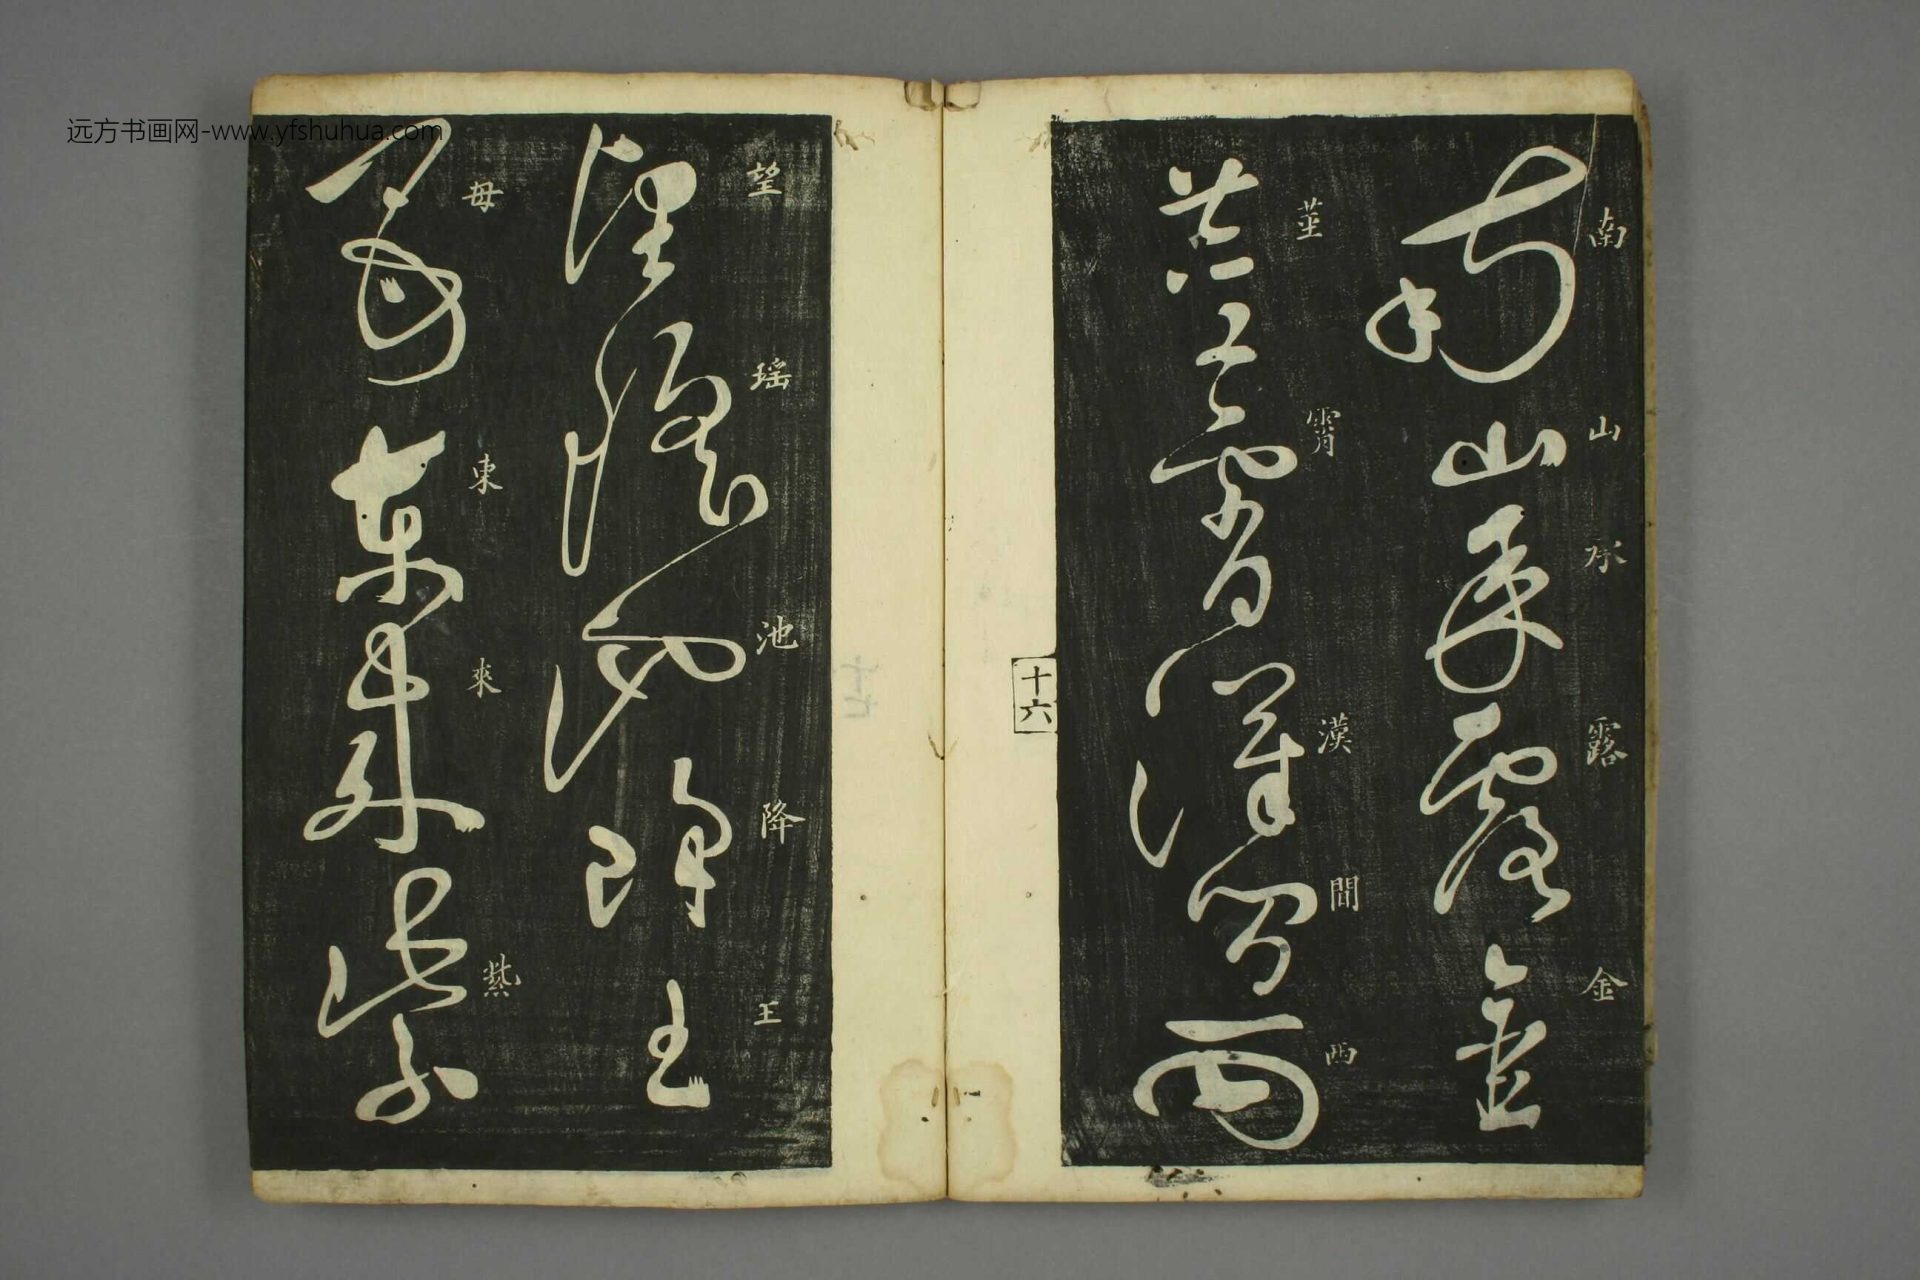 南山承露金
南山承露金
莖霄漢間西
莖霄漢間西
十六
望瑶池降王
望瑶池降王
母東來
母東來紫
远方书画网-www.yfshuhua.com